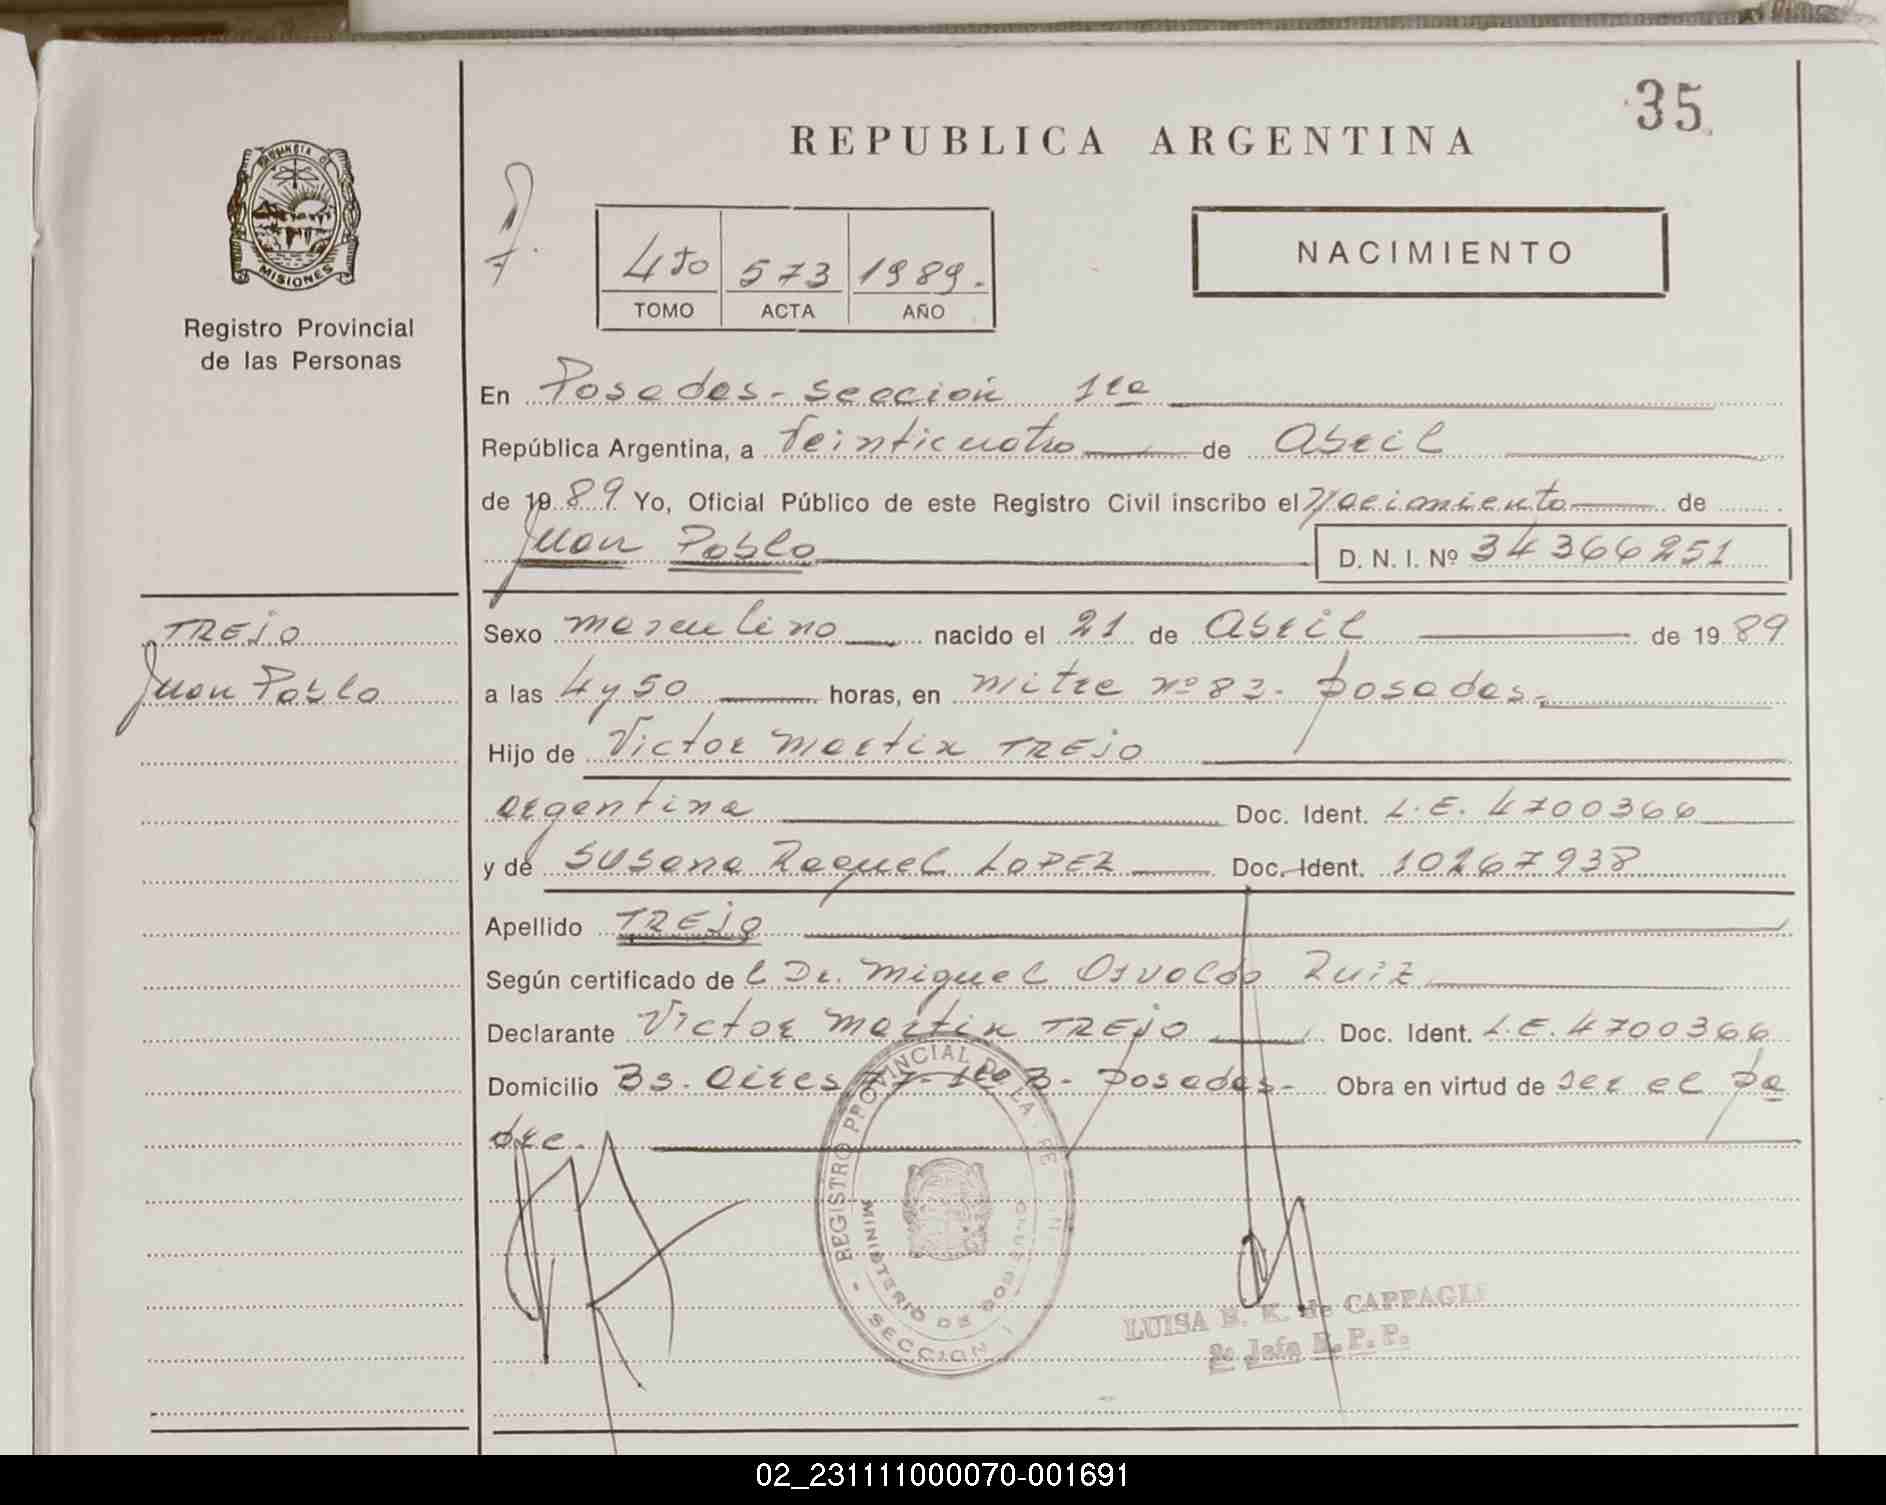 35
REPUBLICA ARGENTINA
PROVINCIA DE
MISIONES
Registro Provincial
de las Personas
4to 573 1989.
TOMO ACTA AÑO
NACIMIENTO
En Posadas - sección 1ra
República Argentina, a Veinticuatro de Abril
de 1989 Yo, Oficial Público de este Registro Civil inscribo el Nacimiento de
Juan Pablo D. N. I. Nº 34366251
TREJO
Juan Pablo
Sexo masculino nacido el 21 de Abril de 1989
a las 4 y 50 horas, en Mitre Nº 83- Posadas-
Hijo de Victor Martin TREJO
argentina Doc. Ident. L.E. 4700366
y de Susana Raquel LOPEZ Doc. Ident. 10267938
Apellido TREJO
Según certificado del Dr. Miguel Osvaldo Ruiz
Declarante Victor Martin TREJO Doc. Ident. L.E. 4700366
Domicilio Bs. Aires 77- 1ro B- Posadas- Obra en virtud de ser el pa
dre.
REGISTRO PROVINCIAL DE LA
MINISTERIO DE GOBIERNO
SECCION 1
LUISA E. K. de CAPPAGLI
2º Jefa R. P. P.
02_231111000070-001691